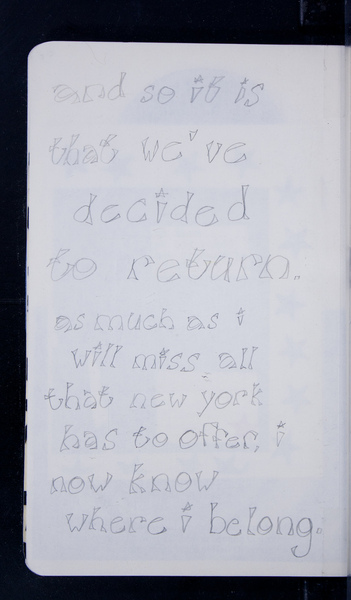 and so it is
that we've
decided
to return.
as much as i
will miss all
that new york
has to offer, i
now know
where i belong.